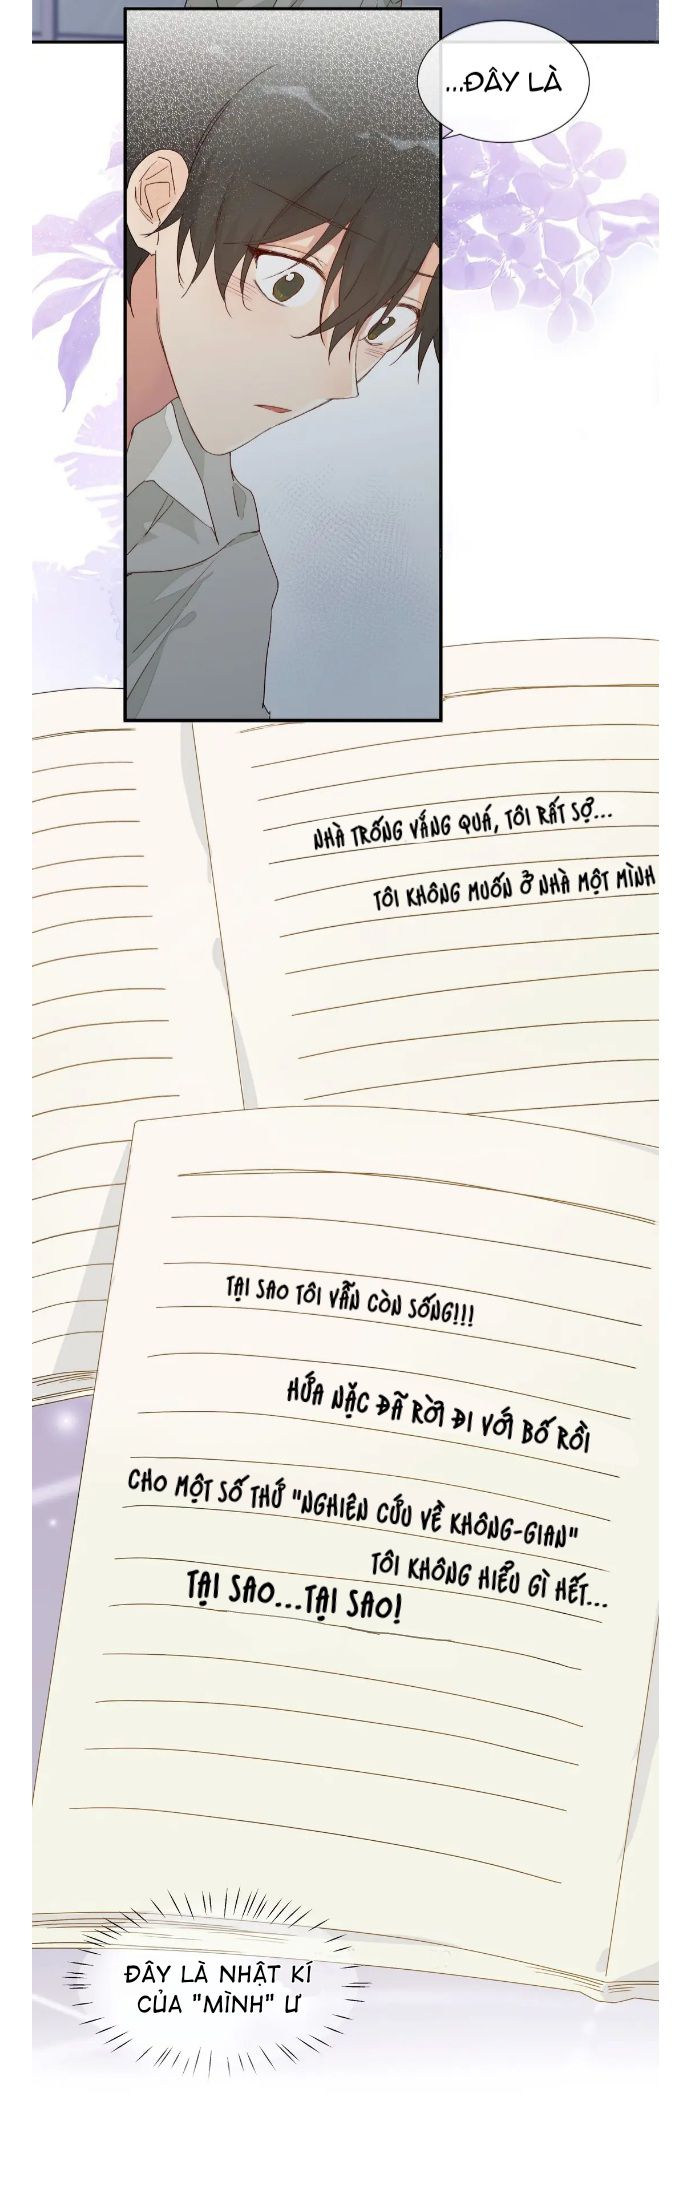 ...ĐÂY LÀ
NHÀ TRỐNG VẮNG QUÁ, TÔI RẤT SỢ...
TÔI KHÔNG MUỐN Ở NHÀ MỘT MÌNH
TẠI SAO TÔI VẪN CÒN SỐNG!!!
HỨA NẶC ĐÃ RỜI ĐI VỚI BỐ RỒI
CHO MỘT SỐ THỨ "NGHIÊN CỨU VỀ KHÔNG-GIAN"
TÔI KHÔNG HIỂU GÌ HẾT...
TẠI SAO...TẠI SAO!
ĐÂY LÀ NHẬT KÍ
CỦA "MÌNH" Ư